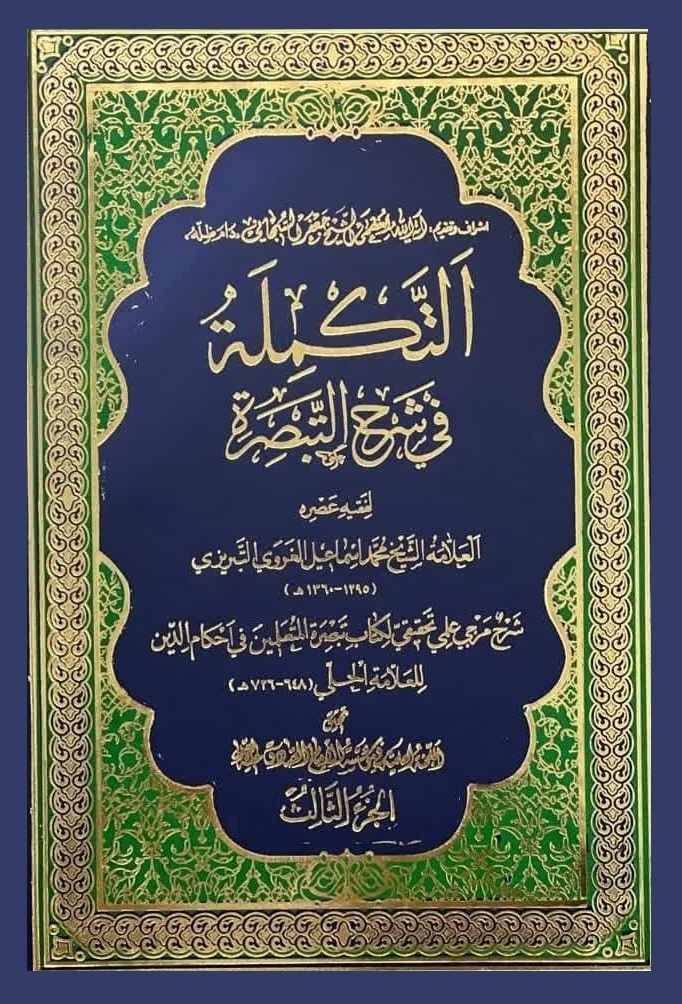 اشراف وتقديم: آية الله العظمى الشيخ جعفر السبحاني «دام ظله»
اَلتَّكمِلَةُ
في شَرح التَّبصَرة
لفقيه عَصْره
العلّامة الشيخ محمد اسماعيل القروي التبريزي
(١٢٩٥-١٣٦٠ هـ)
شرح مزجي علمي تحقيقي لكتاب تبصرة المتعلمين في أحكام الدين
للعلّامة الحلي (٦٤٨-٧٢٦ هـ)
تحقيق
اللجنة العلمية في مؤسسة الإمام الصادق
الجزء الثالث